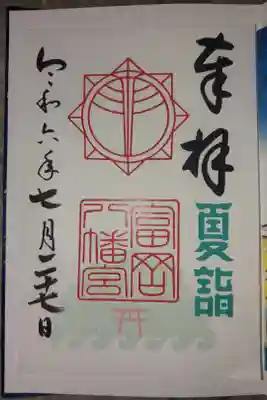 奉拝
夏詣
富岡
八幡宮
令和六年七月二十七日